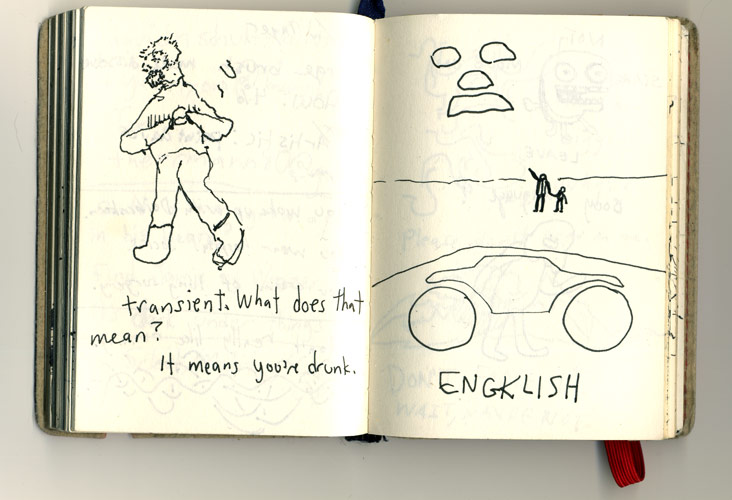 transient. What does that
mean?
It means you're drunk.
ENGKLISH